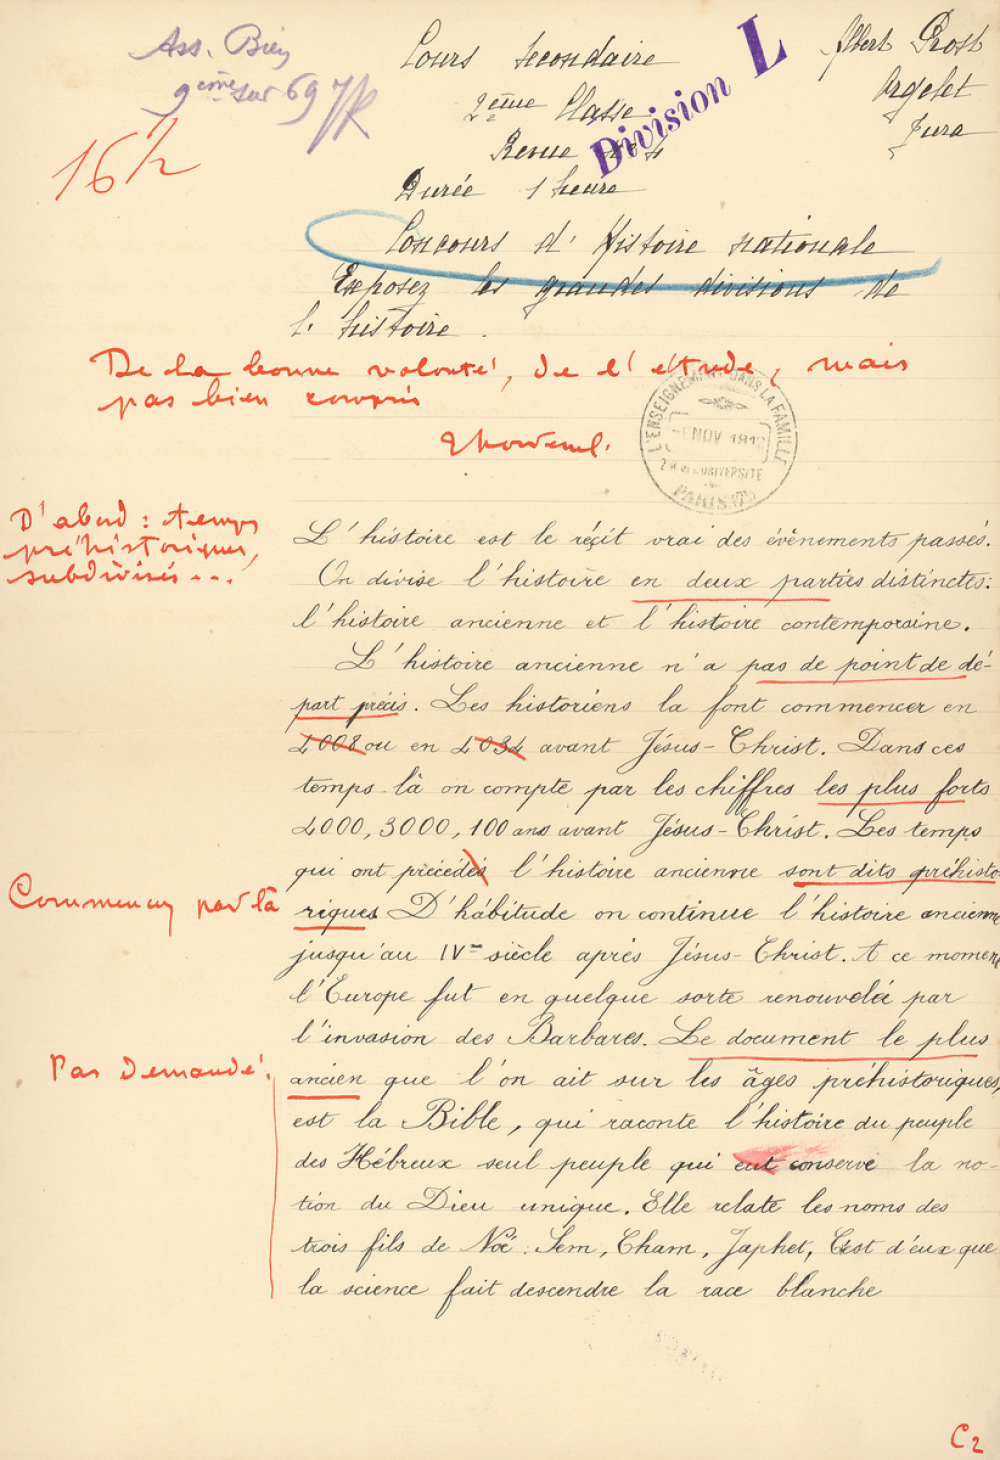 Ass. Bien
9ème sur 69
16 1/2
Cours Secondaire
2ème Classe
Revue n° 4
Durée 1 heure
Division L
Albert Prost
Orgelet
Jura
Concours d'Histoire nationale
Exposez les grandes divisions de
l'histoire.
De la bonne volonté, de l'étude, mais
pas bien compris
L'ENSEIGNEMENT DANS LA FAMILLE
NOV 1912
2 R DE L'UNIVERSITE
PARIS
D'abord : temps
préhistoriques,
subdivisés...
L'histoire est le récit vrai des évènements passés.
On divise l'histoire en deux parties distinctes:
l'histoire ancienne et l'histoire contemporaine.
L'histoire ancienne n'a pas de point de dé-
part précis. Les historiens la font commencer en
4008 ou en 4034 avant Jésus-Christ. Dans ces
temps-là on compte par les chiffres les plus forts
4000, 3000, 100 ans avant Jésus-Christ. Les temps
qui ont précédés l'histoire ancienne sont dits préhisto-
Commencez par là
riques D'habitude on continue l'histoire ancienne
jusqu'au IVme siècle après Jésus-Christ. A ce moment
l'Europe fut en quelque sorte renouvelée par
l'invasion des Barbares. Le document le plus
Pas demandé.
ancien que l'on ait sur les âges préhistoriques,
est la Bible, qui raconte l'histoire du peuple
des Hébreux seul peuple qui eut conservé la no-
tion du Dieu unique. Elle relate les noms des
trois fils de Noé: Sem, Cham, Japhet, C'est d'eux que
la science fait descendre la race blanche
C2